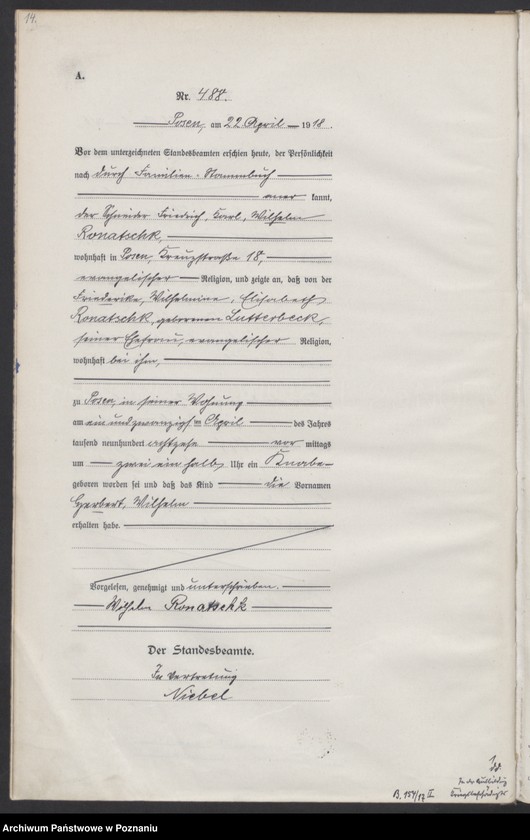 14.
A.
Nr. 488.
Posen, am 22 April 1918.
Vor dem unterzeichneten Standesbeamten erschien heute, der Persönlichkeit
nach durch Familien-Stammbuch
aner kannt,
der Schneider Friedrich, Karl, Wilhelm
Ronatschk,
wohnhaft in Posen, Kreuzstraße 18,
evangelischer Religion, und zeigte an, daß von der
Friederike, Wilhelmine, Elisabeth
Ronatschk, geborenen Lutterbeck,
seiner Ehefrau, evangelischer Religion,
wohnhaft bei ihm,
zu Posen in seiner Wohnung
am ein und zwanzigsten April des Jahres
tausend neunhundert achtzehn vor mittags
um zwei ein halb Uhr ein Knabe
geboren worden sei und daß das Kind die Vornamen
Herbert, Wilhelm
erhalten habe.
Vorgelesen, genehmigt und unterschrieben.
Wilhelm Ronatschk
Der Standesbeamte.
In Vertretung
Niebel
B. 154/17 II
Archiwum Państwowe w Poznaniu